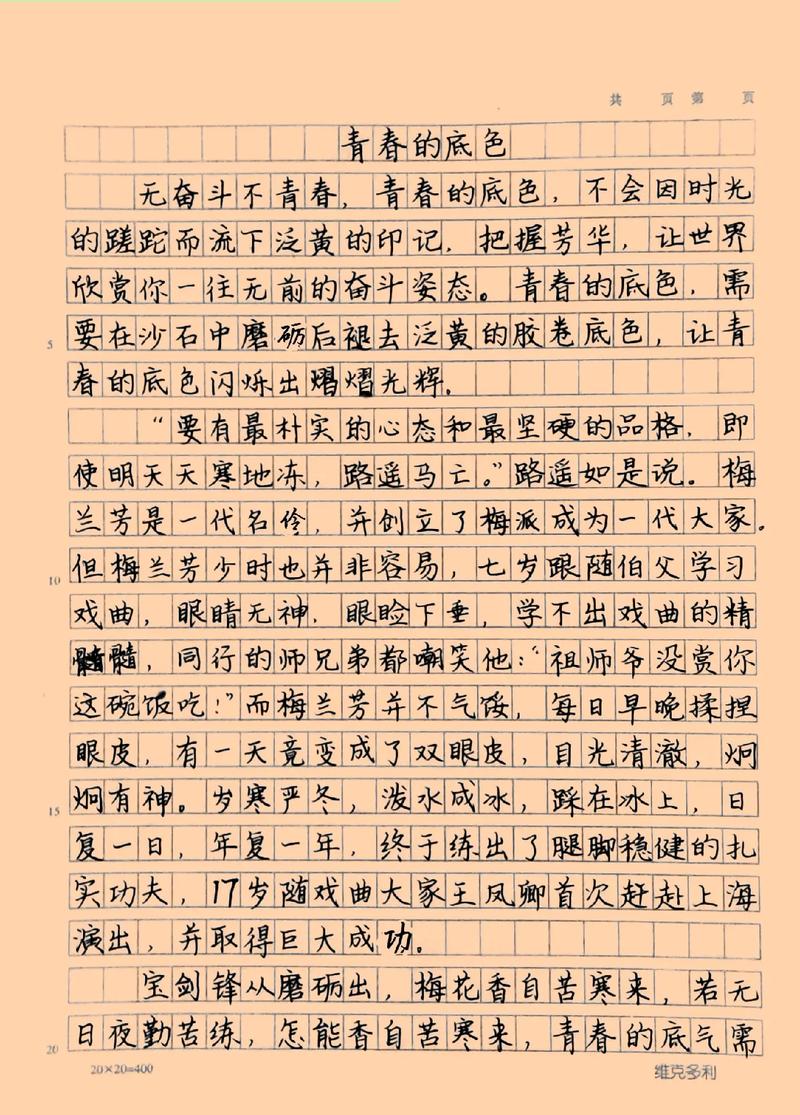 共 页 第 页
青春的底色
无奋斗不青春，青春的底色，不会因时光
的蹉跎而流下泛黄的印记，把握芳华，让世界
欣赏你一往无前的奋斗姿态。青春的底色，需
5 要在沙石中磨砺后褪去泛黄的胶卷底色，让青
春的底色闪烁出熠熠光辉.
“要有最朴实的心态和最坚硬的品格，即
使明天天寒地冻，路遥马亡。”路遥如是说。梅
兰芳是一代名伶，并创立了梅派成为一代大家.
10 但梅兰芳少时也并非容易，七岁跟随伯父学习
戏曲，眼睛无神，眼睑下垂，学不出戏曲的精
髓，同行的师兄弟都嘲笑他：“祖师爷没赏你
这碗饭吃！”而梅兰芳并不气馁，每日早晚揉捏
眼皮，有一天竟变成了双眼皮，目光清澈，炯
15 炯有神。岁寒严冬，泼水成冰，踩在冰上，日
复一日，年复一年，终于练出了腿脚稳健的扎
实功夫，17岁随戏曲大家王凤卿首次赶赴上海
演出，并取得巨大成功.
宝剑锋从磨砺出，梅花香自苦寒来，若无
20 日夜勤苦练，怎能香自苦寒来，青春的底气需
20×20=400 维克多利